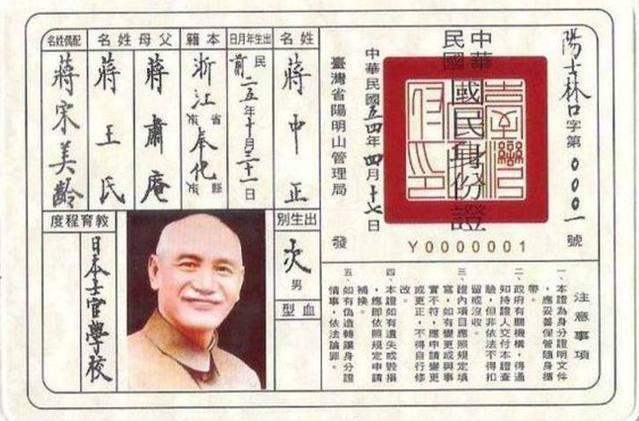 陽士林口字第0001號
中華民國國民身份證
Y0000001
中華民國五四年四月十七日
臺灣省陽明山管理局 發
姓名
蔣中正
出生年月日
民前二五年十月三十一日
本籍
浙江省市奉化縣市
父母姓名
蔣肅庵
蔣王氏
配偶姓名
蔣宋美齡
出生別
次男
血型
教育程度
日本士官學校
注意事項
一、本證為身分證明文件
，應妥善保管隨身攜
帶。
二、政府有關機構，得通
知持證人交付本證查
驗，但非依法不得扣
留或沒收。
三、證內項目應照規定填
寫，如有變更或與事
實不符，應申請變更
或更正，不得自行修
改。
四、本證如有遺失或毀損
，應即依照規定申請
補換。
五、如有偽造轉讓身分證
情事，依法論罪。